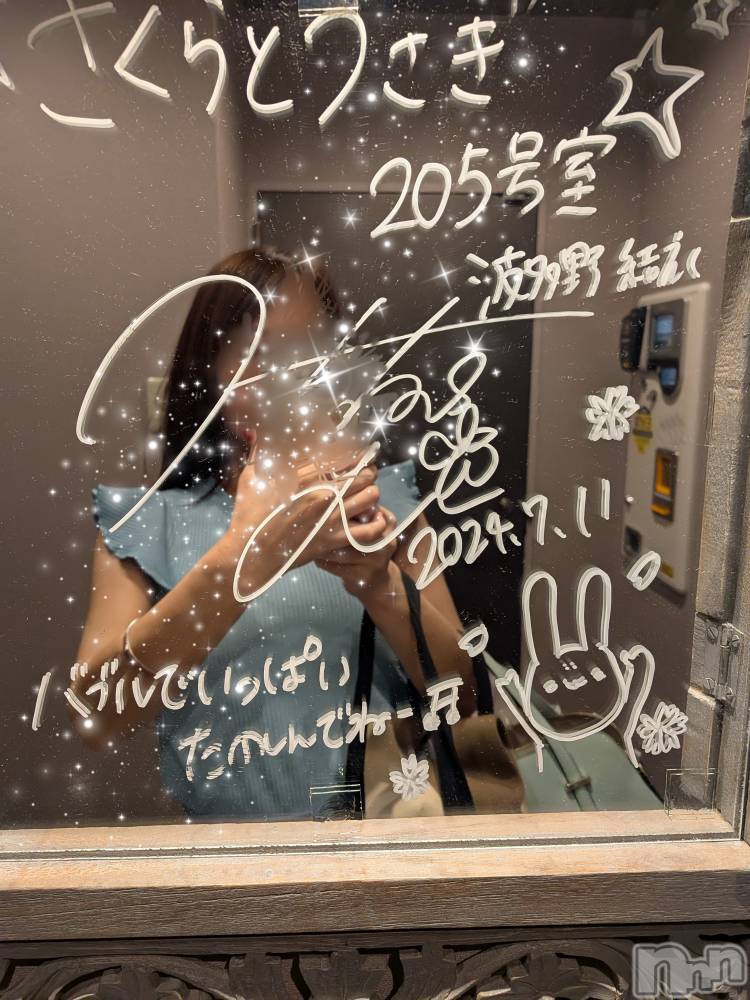 さくらとうさぎ
205号室
波多野 結衣
2024.7.11
バブルでいっぱい
たのしんでねー♬
nnn